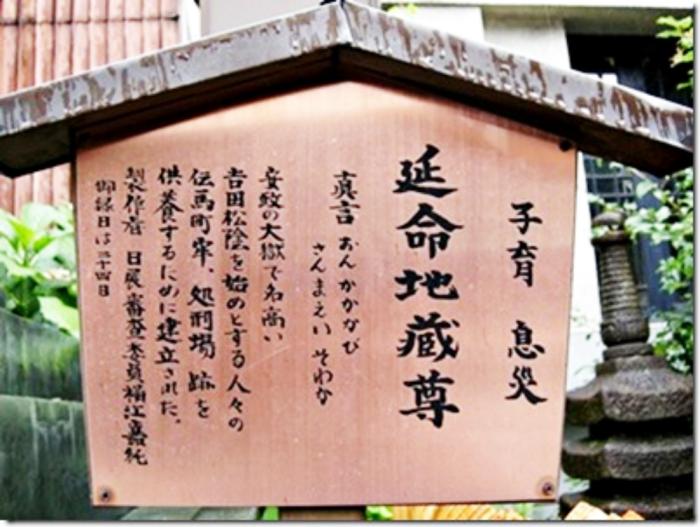 子育 息災
延命地蔵尊
真言 おん かかかび
さんまえい そわか
安政の大獄で名高い
吉田松陰を始めとする人々の
伝馬町牢、処刑場跡を
供養するために建立された。
製作者 日展審査委員
御縁日は二十四日